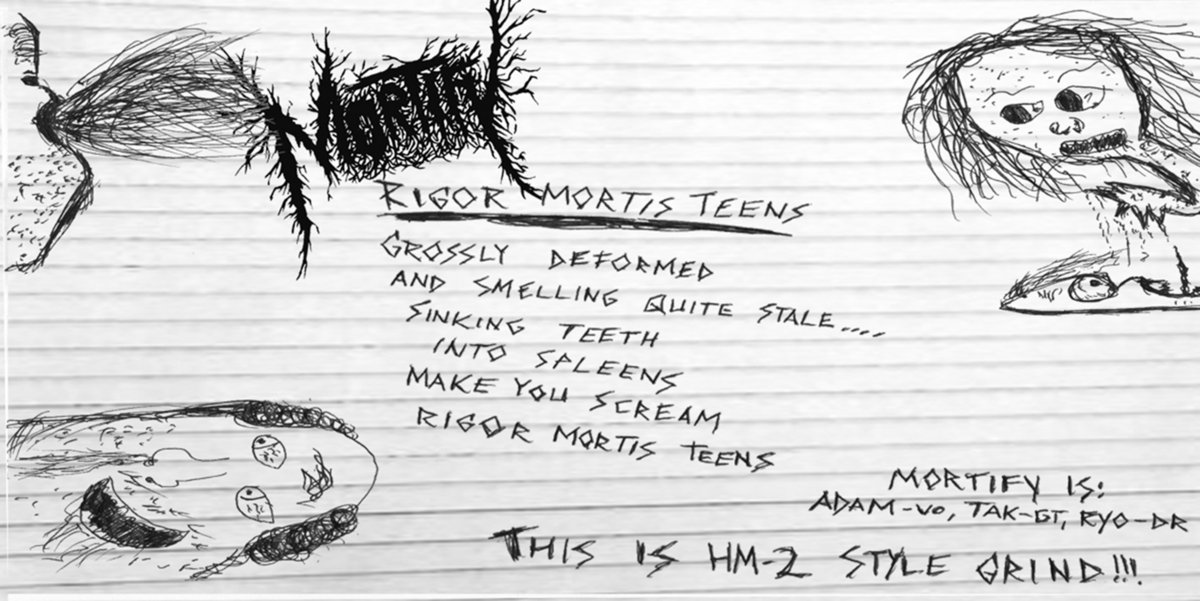 MORTIFY
RIGOR MORTIS TEENS
GROSSLY DEFORMED
AND SMELLING QUITE STALE....
SINKING TEETH
INTO SPLEENS
MAKE YOU SCREAM
RIGOR MORTIS TEENS
MORTIFY IS:
ADAM-VO, TAK-GT, RYO-DR
THIS IS HM-2 STYLE GRIND!!!